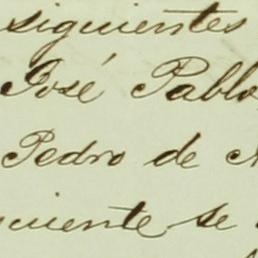 siguientes
José Pablo
Pedro de
se